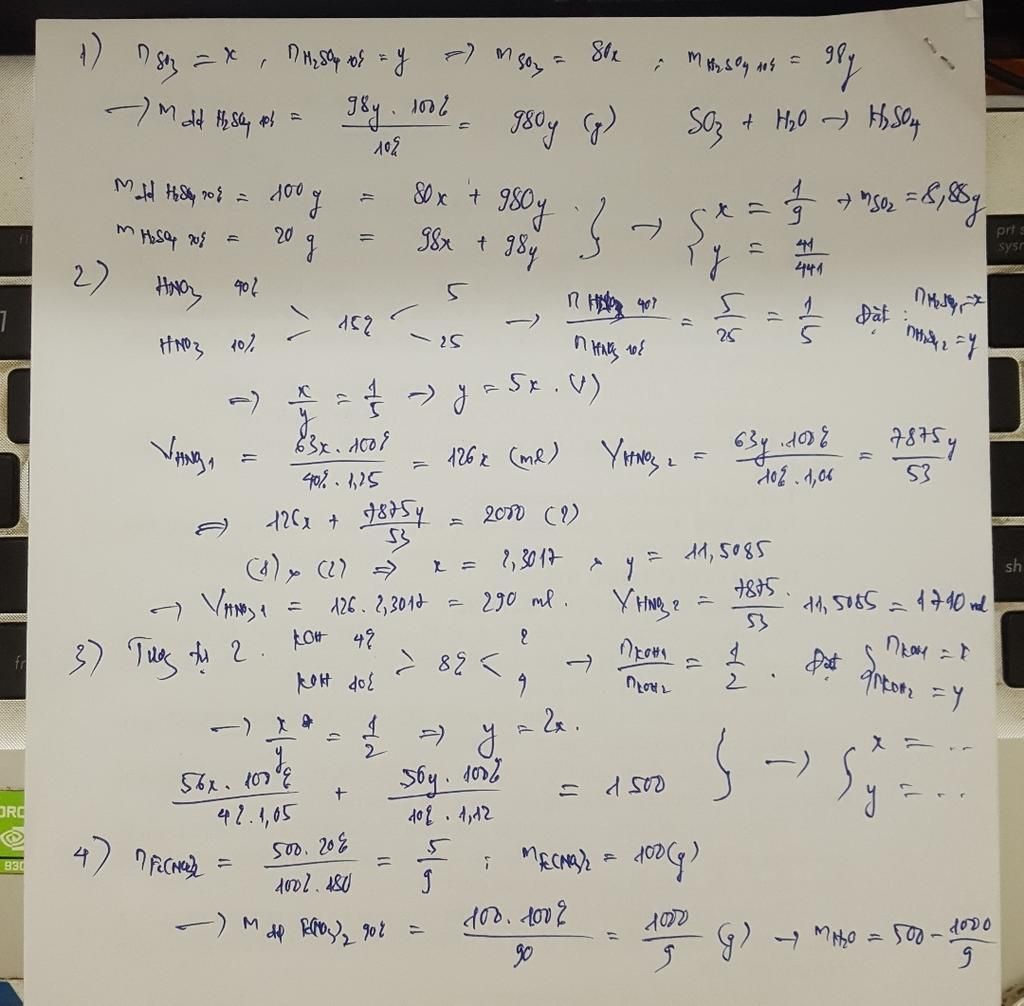 1) n SO3 = x , n H2SO4 10% = y => m SO3 = 80x ; m H2SO4 10% = 98y
-> m dd H2SO4 10% = 98y . 100% / 10% = 980y (g) SO3 + H2O -> H2SO4
m dd H2SO4 20% = 100 g = 80x + 980y
m H2SO4 20% = 20 g = 98x + 98y } -> { x = 1/9 -> mSO2 = 8,88g
y = 41/441
2) HNO3 40% 5
HNO3 10% > 15% < 25 -> n HNO3 40% / n HNO3 10% = 5/25 = 1/5 Đặt : nH2SO4 1 = x
nH2SO4 2 = y
=> x/y = 1/5 -> y = 5x . (1)
V HNO3 1 = 63x . 100% / 40% . 1,25 = 126x (ml) V HNO3 2 = 63y . 100% / 10% . 1,06 = 7875y / 53
=> 126x + 7875y / 53 = 2000 (2)
(1), (2) => x = 2,3017 , y = 11,5085
-> V HNO3 1 = 126 . 2,3017 = 290 ml . V HNO3 2 = 7875 / 53 . 11,5085 = 1710 ml
3) Tương tự 2 . KOH 4% 2
KOH 10% > 8% < 4 -> nKOH1 / nKOH2 = 1/2 . Đặt { nKOH1 = x
nKOH2 = y
-> x/y = 1/2 => y = 2x .
56x . 100% / 4% . 1,05 + 56y . 100% / 10% . 1,12 = 1500 } -> { x = ...
y = ...
4) n Fe(NO3)2 = 500 . 20% / 100% . 180 = 5/9 ; m Fe(NO3)2 = 100 (g)
-> m dd Fe(NO3)2 90% = 100 . 100% / 90 = 1000/9 (g) -> mH2O = 500 - 1000/9
prt s
sysr
sh
930